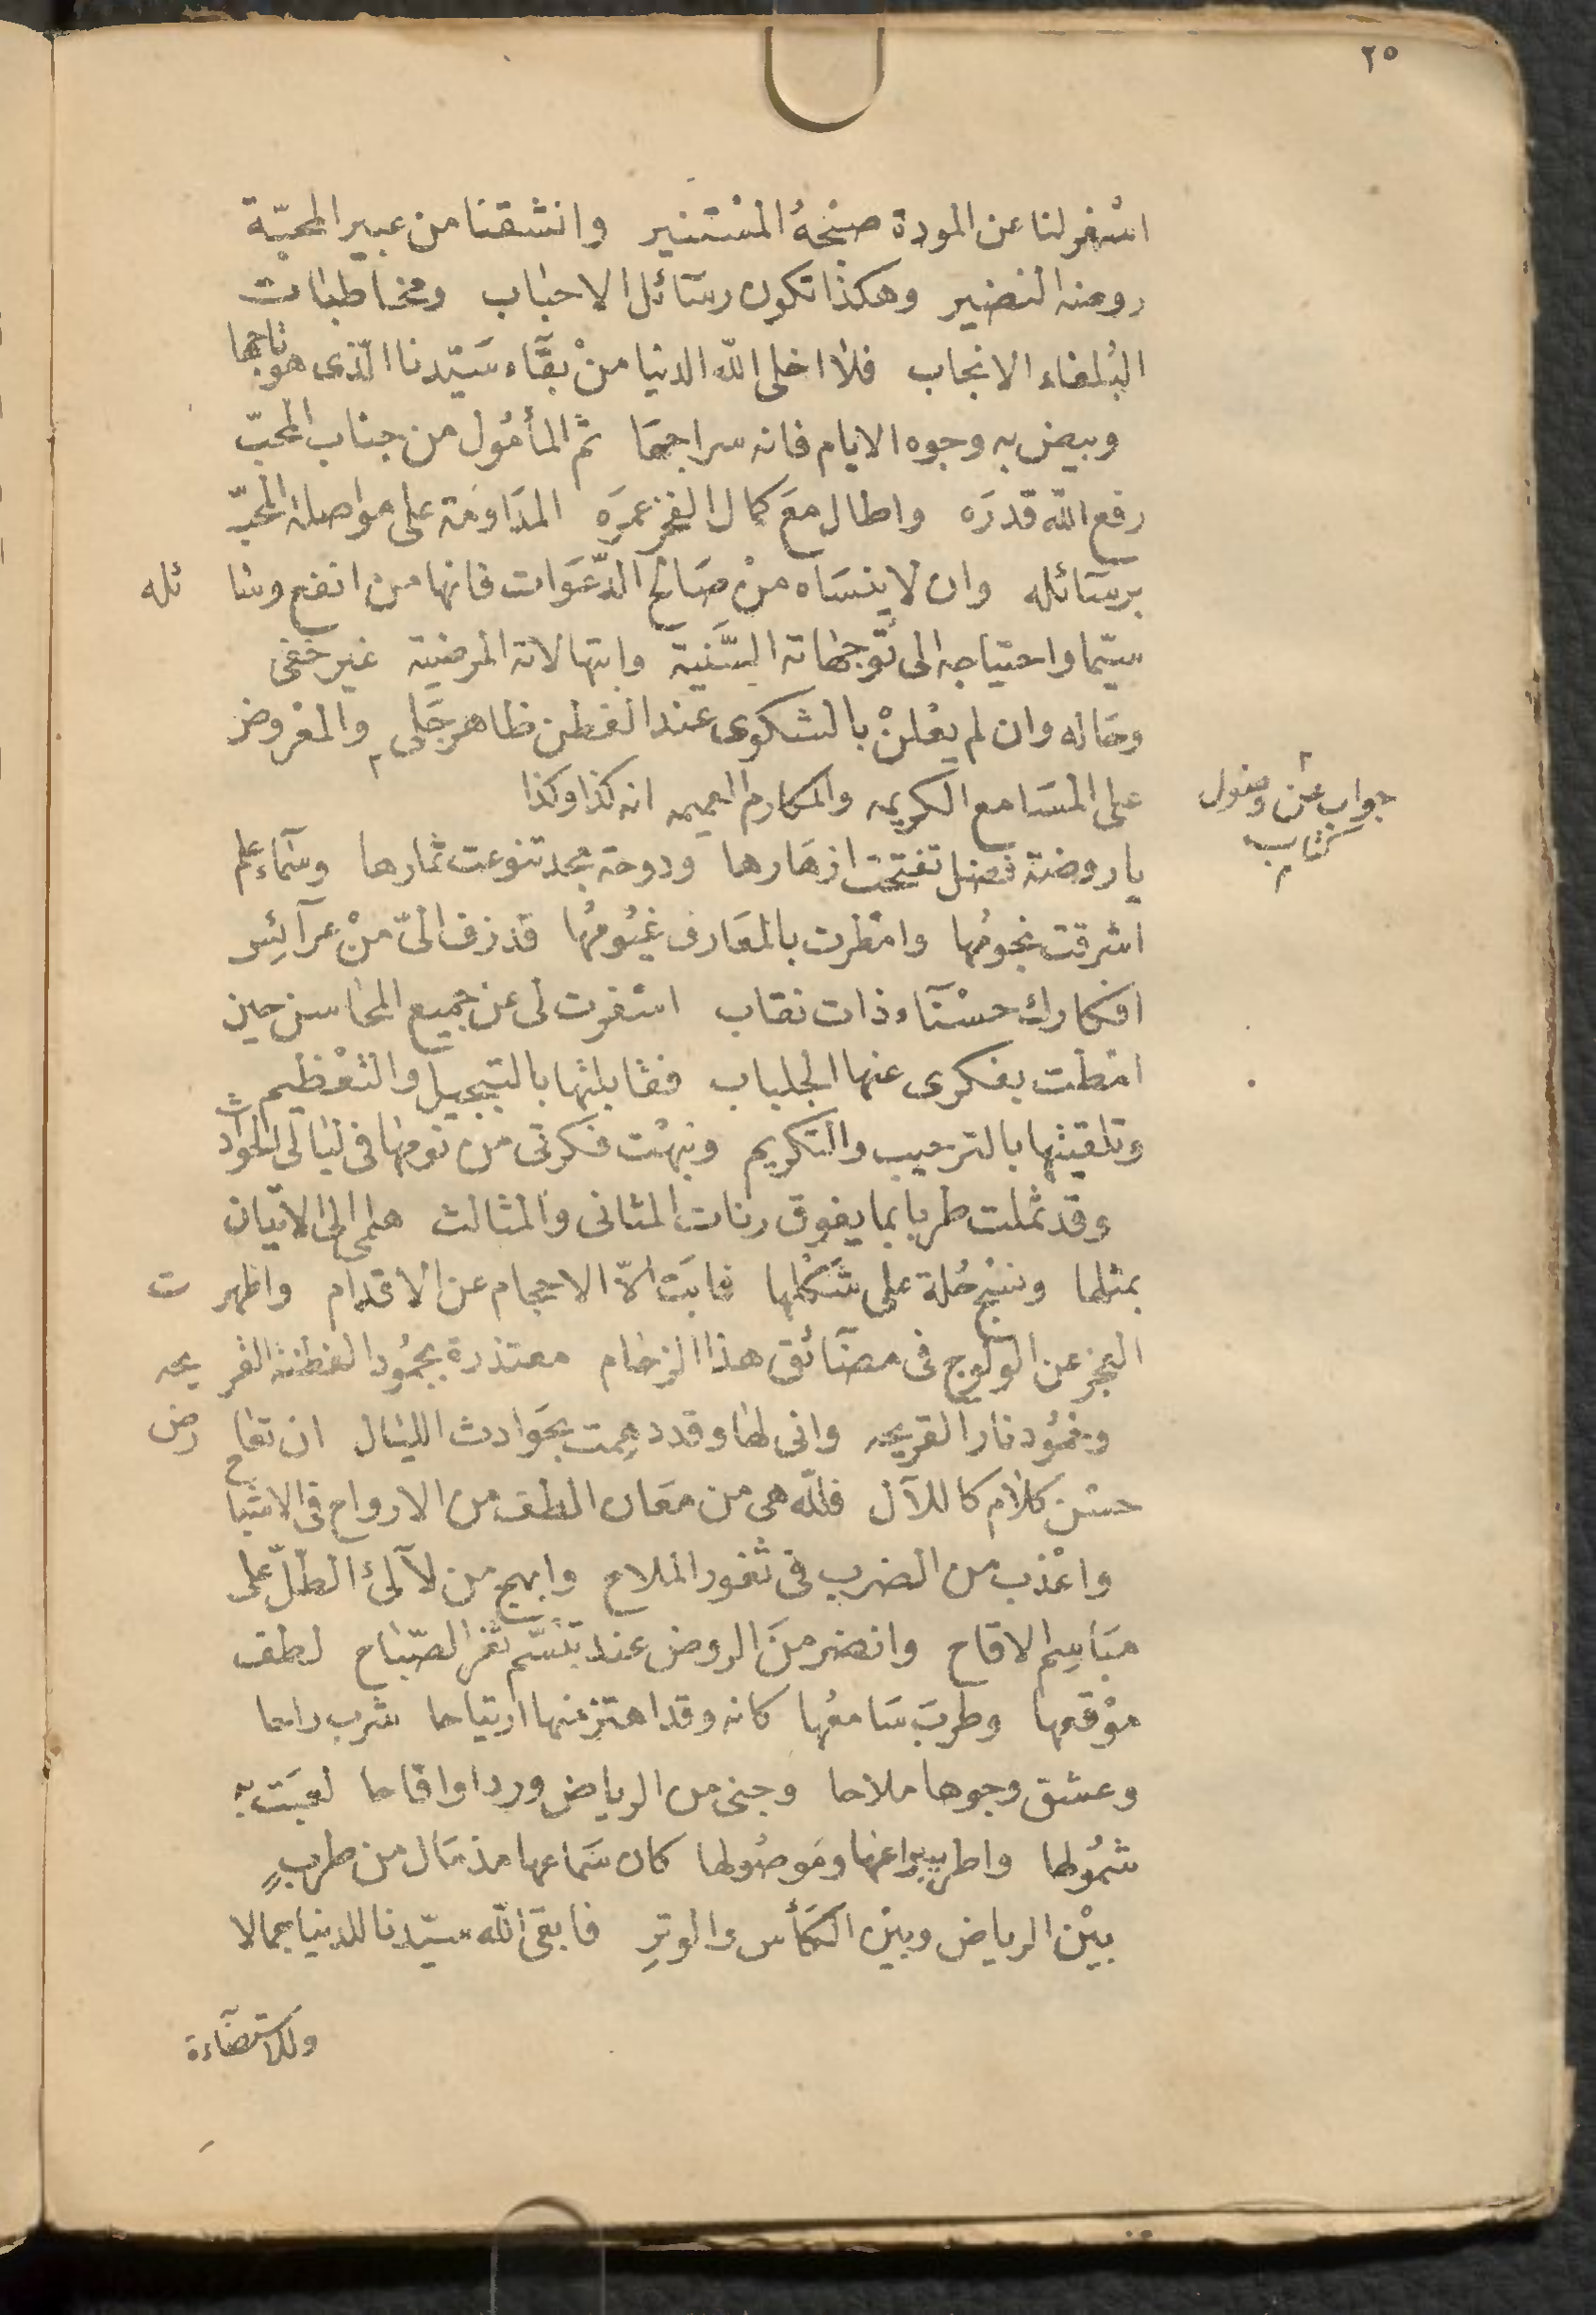 ٢٥
اسفر لنا عن المودة صبحهُ المستنير وانشقنا من عبير المحبّة
روضه النضير وهكذا تكون رسَائل الاحباب ومخاطبات
البُلغاء الانجاب فلا اخلى الله الدنيا منْ بقآء سَيّدنا الّذى هو تاجها
وبيض به وجوه الايام فانه سراجهَا ثم المأمُول من جناب المحبّ
رفع الله قدرَه واطال معَ كمال الفخر عمرَه المدَاومَة على مواصلة المحبّ
برسَائله وان لا ينسَاه منْ صَالح الدّعَوات فانها من انفع وسائله
سيّما واحتياجه الى تَوجهاته السَّنيَة وابتهالاته المرضية غير خفى
وحَاله وان لم يعْلنْ بالشكوى عند الفطن ظاهر جَلى والمعْروض
على المسَامع الكريمه والمكارم العميمه انه كذا وكذا
جواب عن وصُول
كتاب
يا روضة فضل تفتحت ازهَارها ودوحة مجد تنوعت ثمارها وسَمآء علم
اشرقت نجومُها وامْطرت بالمعَارف غيُومُها قد زف الىّ منْ عرآئِس
افكارك حسْنَآء ذات نقاب اسْفرت لى عن جميع المحَاسن حين
امَطت بفكرى عنها الجلباب فقابلتها بالتبجيل والتعْظيم
وتلقيتها بالترحيب والتكريم ونبهْت فكرتى من نومها فى ليَالى الحوادث
وقد ثملت طربا بما يفوق رنات المثانى والمثالث هلمى الى الاتيان
بمثلها ونسْج حُلة على شَكْلها فابَت الّا الاحجام عن الاقدام واظهرت
العجز عن الولوج فى مضَآئق هذا الزحام معتذرة بجمُود الفطنة القريحه
وخمُود نار القريحه وانى لها وقد دهِمت بحَوادث الليَال ان تعارض
حسْن كلام كاللآل فللّه هى من معَان الطف من الارواح فى الاشباح
واعْذب من الضرب فى ثغور الملاح وابهج من لآلئ الطلّ على
مبَاسِم الاقاح وانضر منَ الروض عند تبَسّم ثغر الصّبَاح لطف
موْقعها وطربَ سَامعُها كانه وقد اهتز منها ارتياحا شرب راحا
وعشق وجوها ملاحا وجنى من الرياض وردا واقاحا لعبَت به
شمُولها واطربه يراعها ومَوصُولها كان سَماعها مذ مَال من طربٍ
بيْن الرياض وبين الكَأس والوترِ فابقى الله سيّدنا للدنيا جمالا
وللاستضآءة